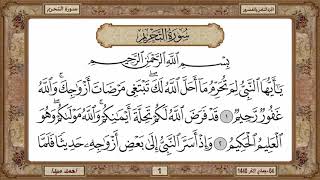 سورة التحريم
سُورَةُ التَّحْرِيمِ
بِسْمِ اللَّهِ الرَّحْمَٰنِ الرَّحِيمِ
يَا أَيُّهَا النَّبِيُّ لِمَ تُحَرِّمُ مَا أَحَلَّ اللَّهُ لَكَ تَبْتَغِي مَرْضَاتَ أَزْوَاجِكَ وَاللَّهُ
غَفُورٌ رَّحِيمٌ ١ قَدْ فَرَضَ اللَّهُ لَكُمْ تَحِلَّةَ أَيْمَانِكُمْ وَاللَّهُ مَوْلَاكُمْ وَهُوَ
الْعَلِيمُ الْحَكِيمُ ٢ وَإِذْ أَسَرَّ النَّبِيُّ إِلَىٰ بَعْضِ أَزْوَاجِهِ حَدِيثًا فَلَمَّا
1